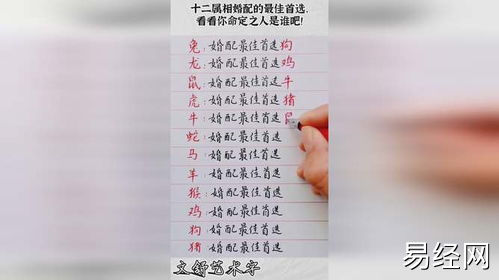 十二属相婚配的最佳首选,
看看你命定之人是谁吧!
兔:婚配最佳首选狗
龙:婚配最佳首选鸡
鼠:婚配最佳首选牛
虎:婚配最佳首选猪
牛:婚配最佳首选
蛇:婚配最佳首选
马:婚配最佳首选
羊:婚配最佳首选
猴:婚配最佳首选
鸡:婚配最佳首选
狗:婚配最佳首选
猪:婚配最佳首选
文舒艺术字
易经网